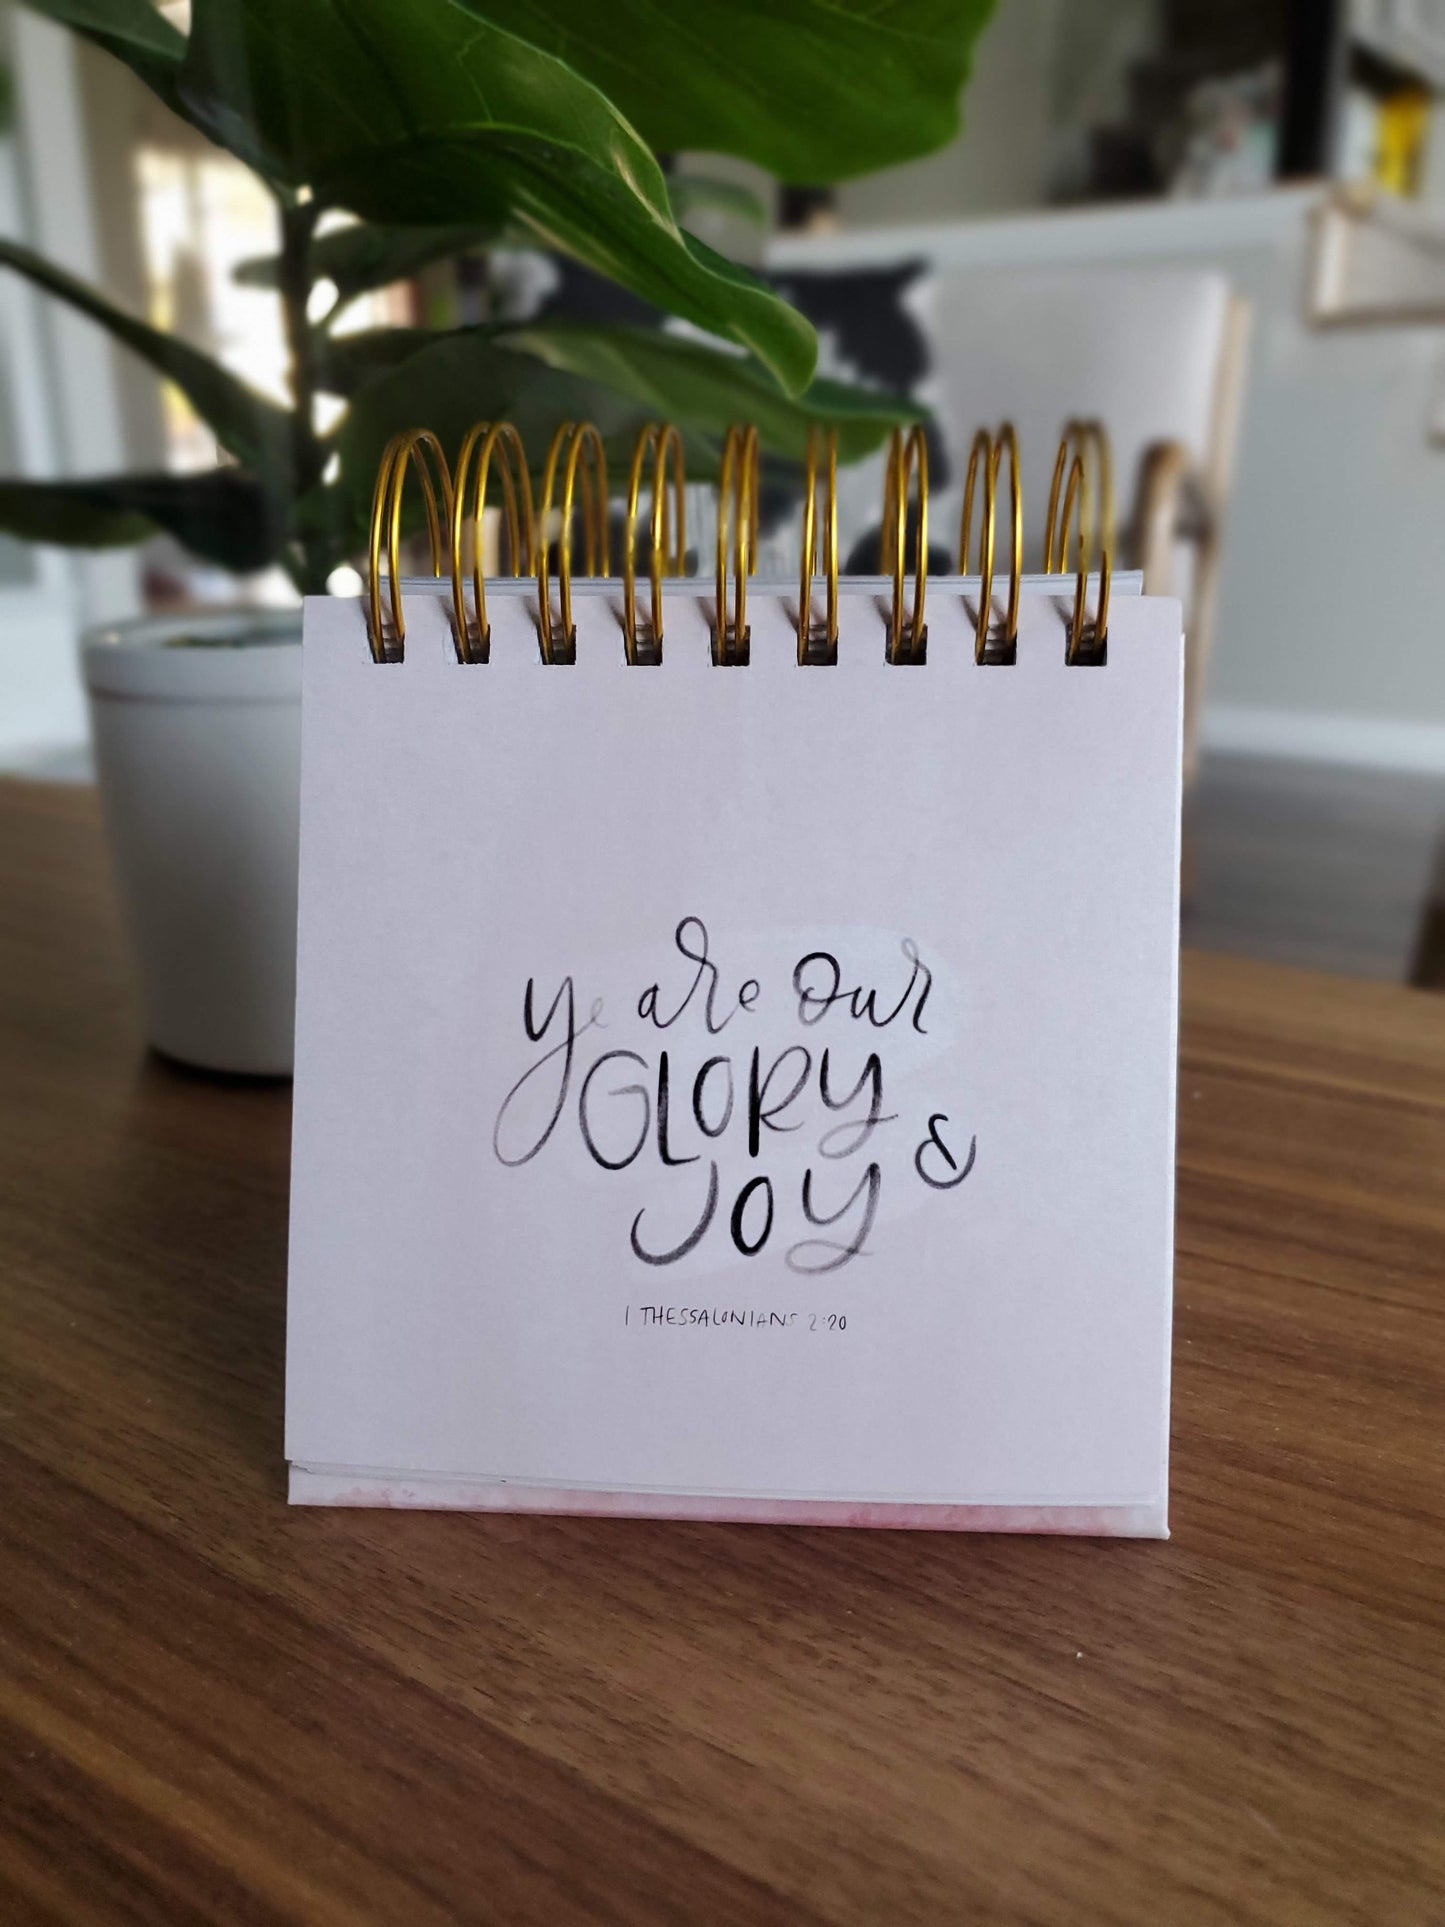 ye are our
GLORY &
JOY
1 THESSALONIANS 2:20